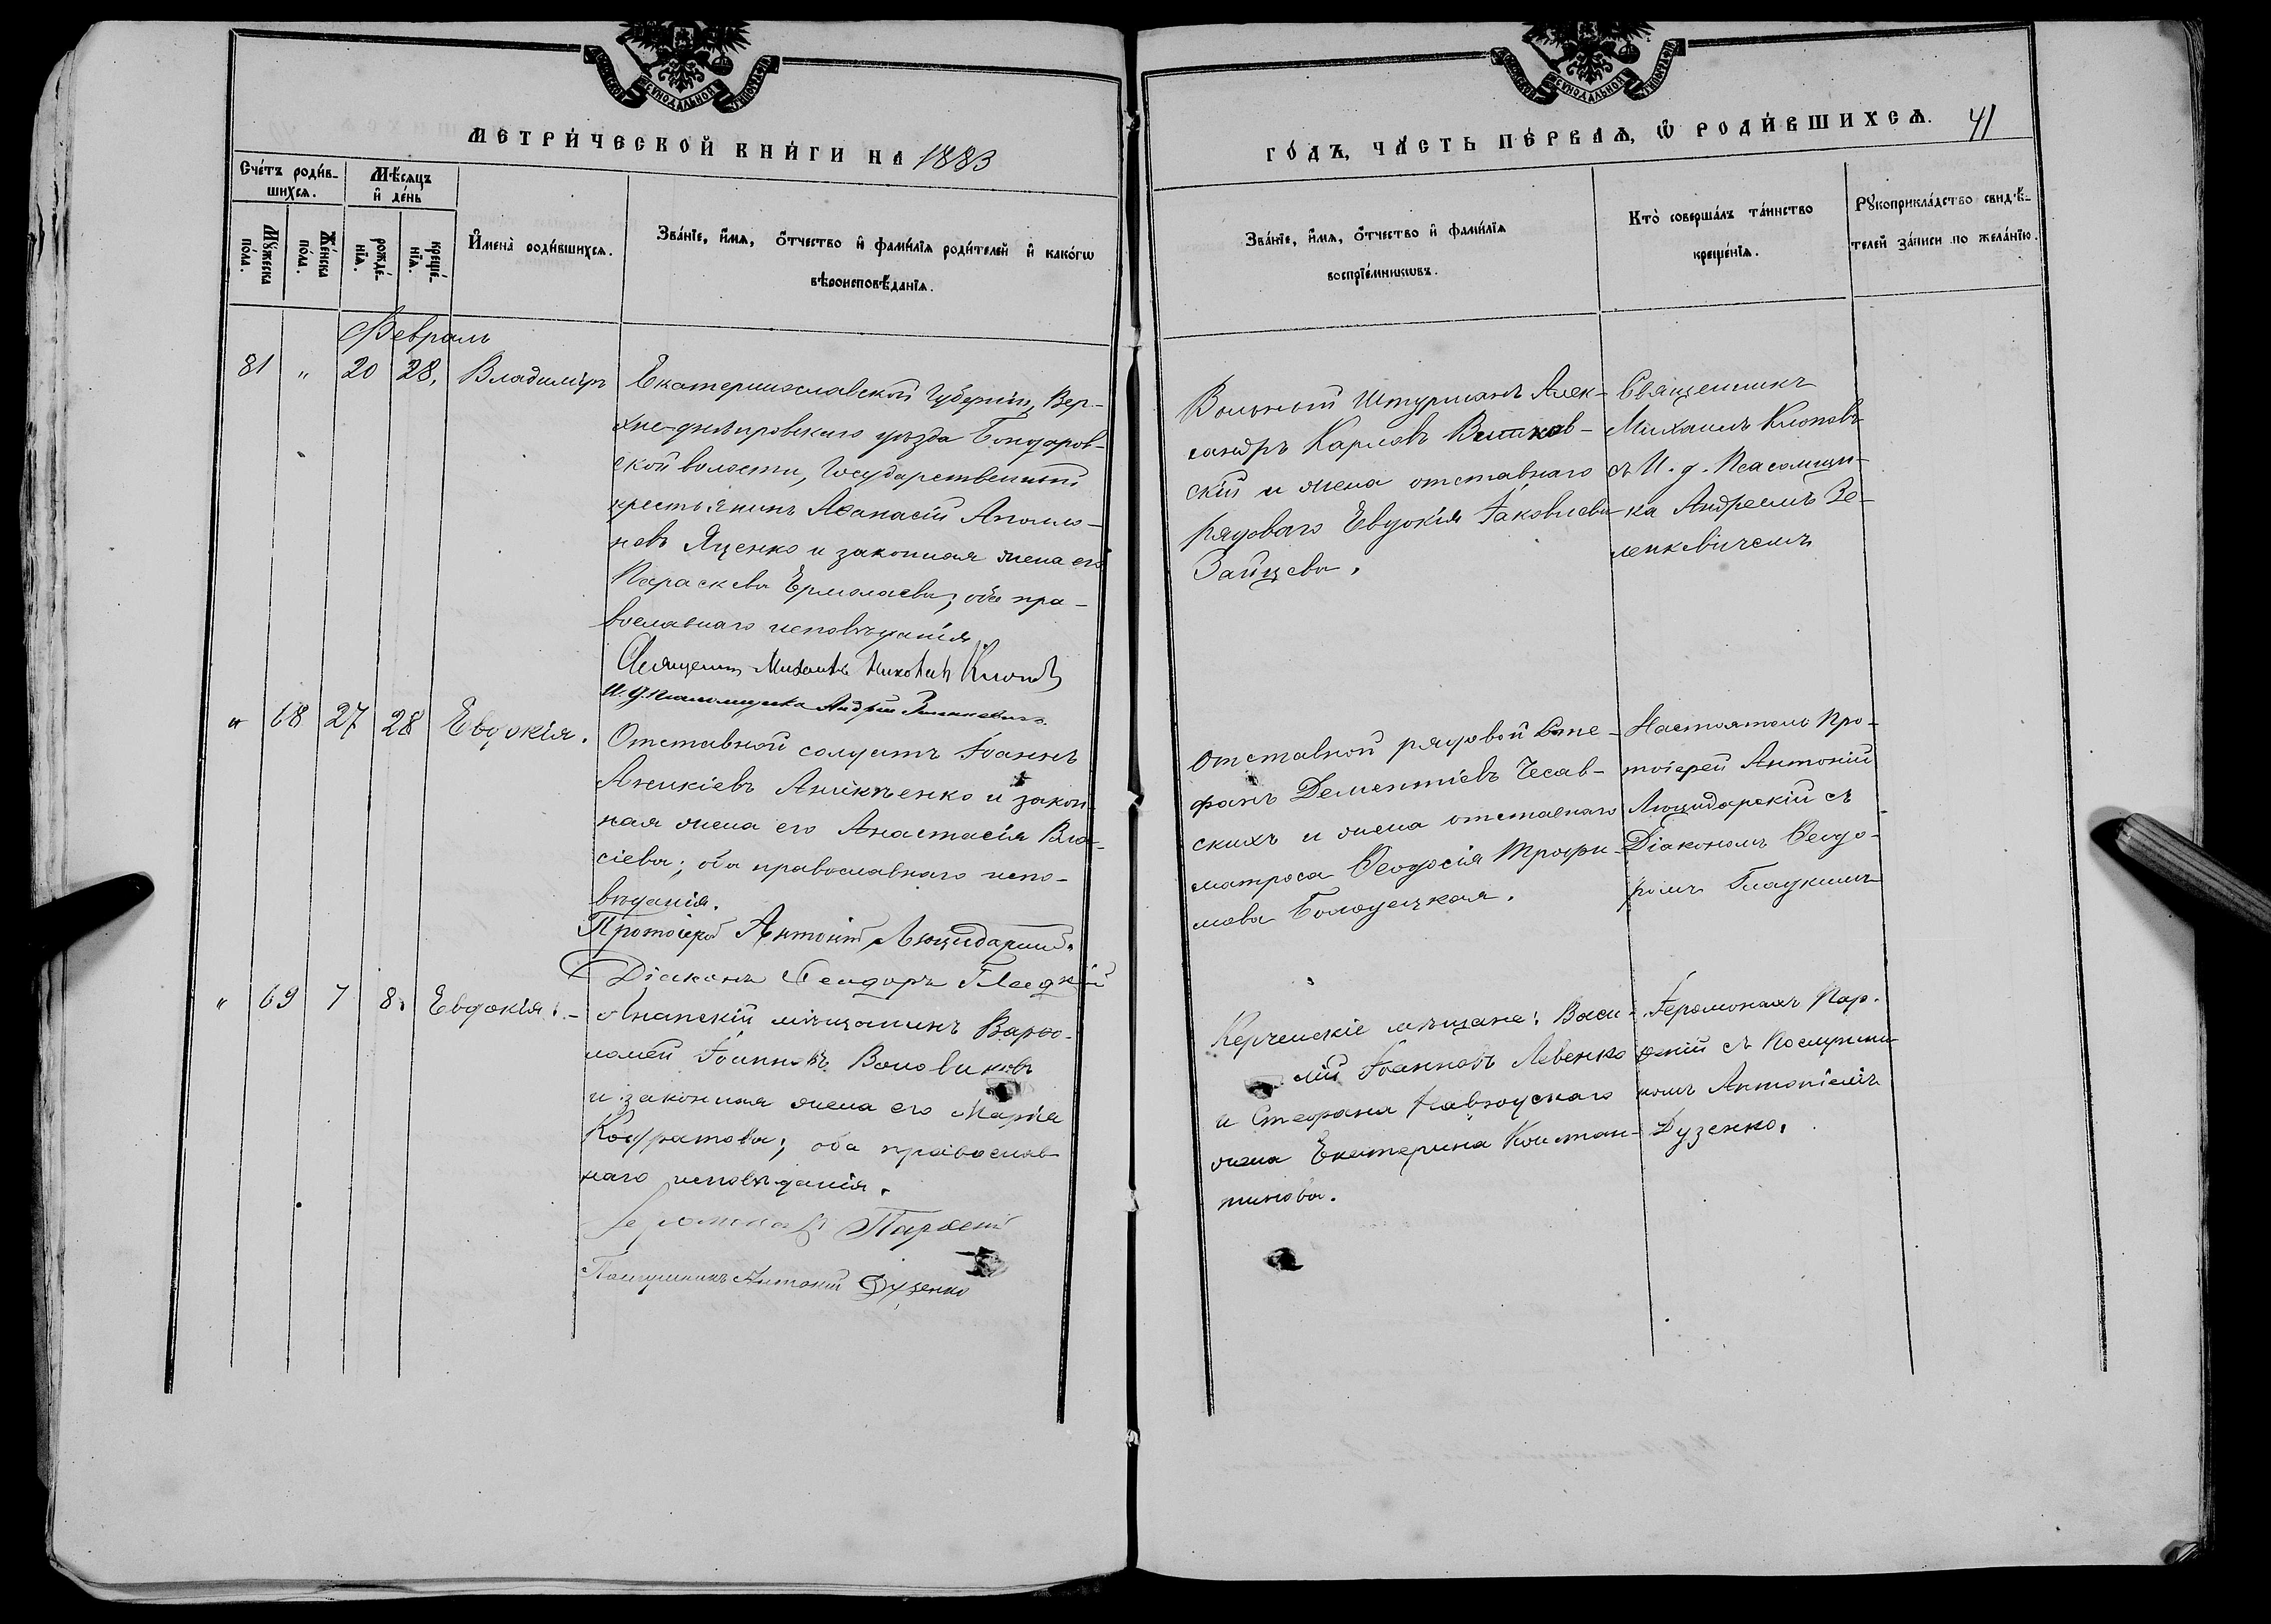 МЕТРИ́ЧЕСКОЙ КНИ́ГИ НА 1883
Счётъ роди́в-
шихсѧ.
Мѣ́сѧцъ
и҆ де́нь
Му́жеска
по́ла.
Же́нска
по́ла.
рожде́-
нїѧ.
креще́-
нїѧ.
И҆мена̀ роди́вшихсѧ.
Зва́нїе, и҆́мѧ, о҆́тчество и҆ фами́лїѧ роди́телей и҆ како́гѡ
вѣроисповѣ́данїѧ.
Февраль
81 " 20 28. Владиміръ
Екатеринославской Губерніи, Вер-
хне-днѣпровскаго уѣзда Бондаров-
ской волости, Государственный
крестьянинъ Аѳанасій Аполло-
новъ Яценко и законная жена его
Параскева Ермолаева; оба пра-
вославнаго исповѣданія
Священникъ Михаилъ Клоповъ
И. д. Псаломщика Андрей
" 68 27 28 Евдокія.
Отставной солдатъ Іоаннъ
Аникіевъ Аникѣенко и закон-
ная жена его Анастасія Вла-
сіева; оба православнаго испо-
вѣданія.
Протоіерей Антоній Люцидарскій.
Діаконъ Ѳеодоръ Гладкій
" 69 7 8. Евдокія.-
Анапскій мѣщанинъ Варѳо-
ломей Іоанновъ Воловиковъ
и законная жена его Марія
Кодратова; оба православ-
наго исповѣданія.
Іеромонахъ Парѳеній
Послушникъ Антоній Дузенко
ГО́ДЪ, ЧА́СТЬ ПЕ́РВАѦ, Ѡ҆ РОДИ́ВШИХСѦ. 41
Зва́нїе, и҆́мѧ, о҆́тчество и҆ фами́лїѧ
воспрїе́мникѡвъ.
Кто̀ соверша́лъ та́инство
креще́нїѧ.
Рꙋкоприкла́дство свидѣ́-
телей за́писи по жела́нїю.
Вольный Штурманъ Алек-
сандръ Карловъ
скій и жена отставнаго
рядоваго Евдокія Іаковлева
Зайцева.
Священникъ
Михаилъ Клоповъ
съ И. д. Псаломщи-
ка Андреемъ Зе-
ленкевичемъ
Отставной рядовой Сте-
фанъ Дементіевъ Чесав-
скихъ и жена отставнаго
матроса Ѳеодосія Трофи-
мова Бологецкая.
Настоятель Про-
тоіерей Антоній
Люцидарскій съ
Діакономъ Ѳеодо-
ромъ Гладкимъ
Керченскіе мѣщане: Васи-
лій Іоанновъ Левенко
и Стефана Навроцскаго
жена Екатерина Констан-
тинова.
Іеромонахъ Пар-
ѳеній съ Послушни-
комъ Антоніемъ
Дузенко.